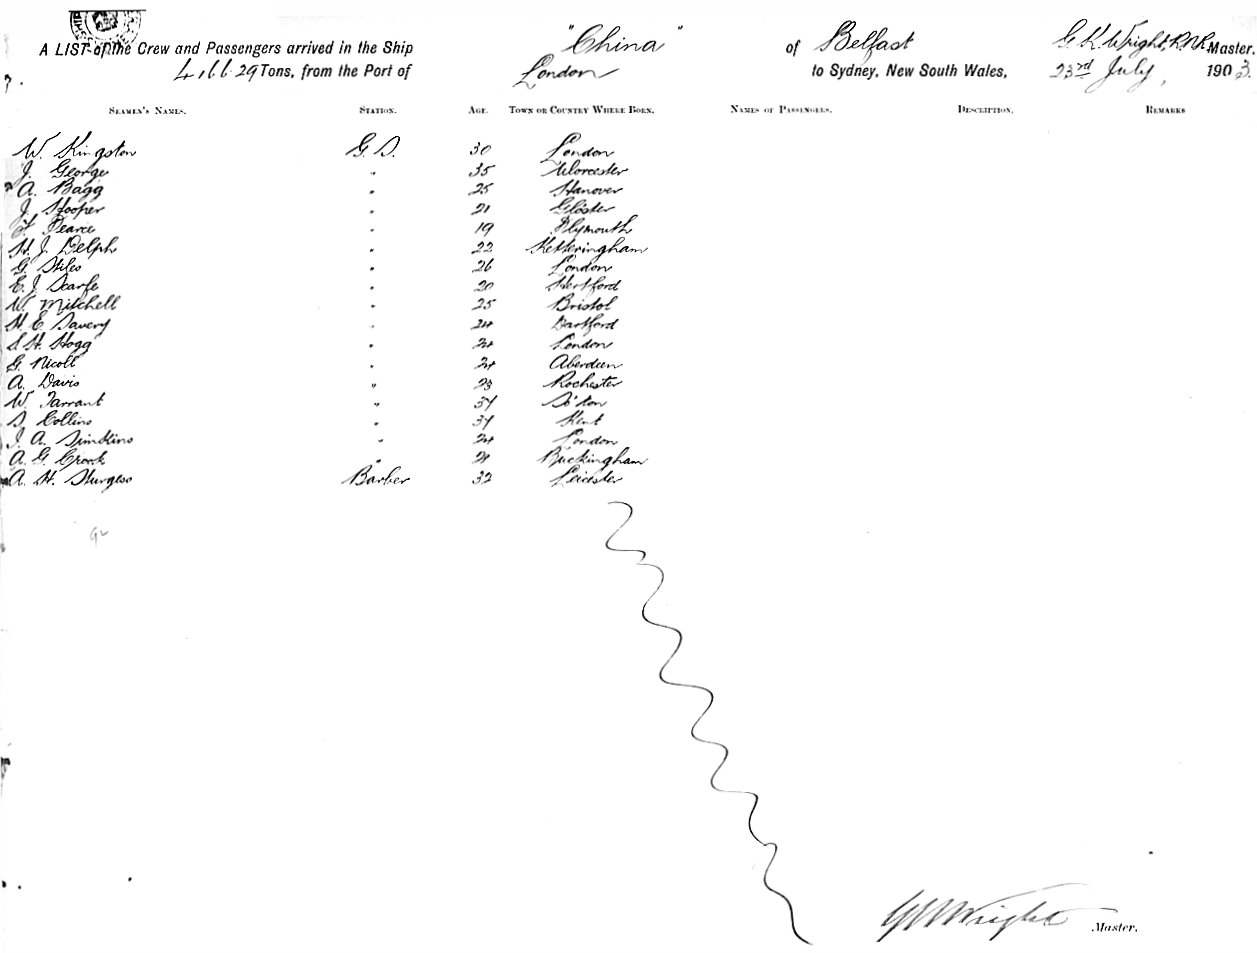 A LIST of the Crew and Passengers arrived in the Ship "China" of Belfast G. K. Wright, R.N.R. Master.
4,166.29 Tons, from the Port of London to Sydney, New South Wales, 23rd July, 1903.
SEAMEN'S NAMES. STATION. AGE. TOWN OR COUNTRY WHERE BORN. NAMES OF PASSENGERS. DESCRIPTION. REMARKS
W. Kingston G. S. 30 London
J. George " 35 Worcester
A. Bagg " 25 Hanover
J. Hooper " 21 Gloster
F. Pearce " 19 Plymouth
H. J. Delph " 22 Ketteringham
G. Stiles " 26 London
E. J. Scarfe " 20 Hertford
W. Mitchell " 25 Bristol
H. E. Savery " 24 Dartford
S. H. Hogg " 24 London
G. Nicoll " 24 Aberdeen
A. Davis " 23 Rochester
W. Tarrant " 37 So'ton
S. Collins " 37 Kent
J. A. Simkins " 24 London
A. G. Crook " 21 Buckingham
A. H. Sturgess Barber 32 Leicester
92
G K Wright Master.